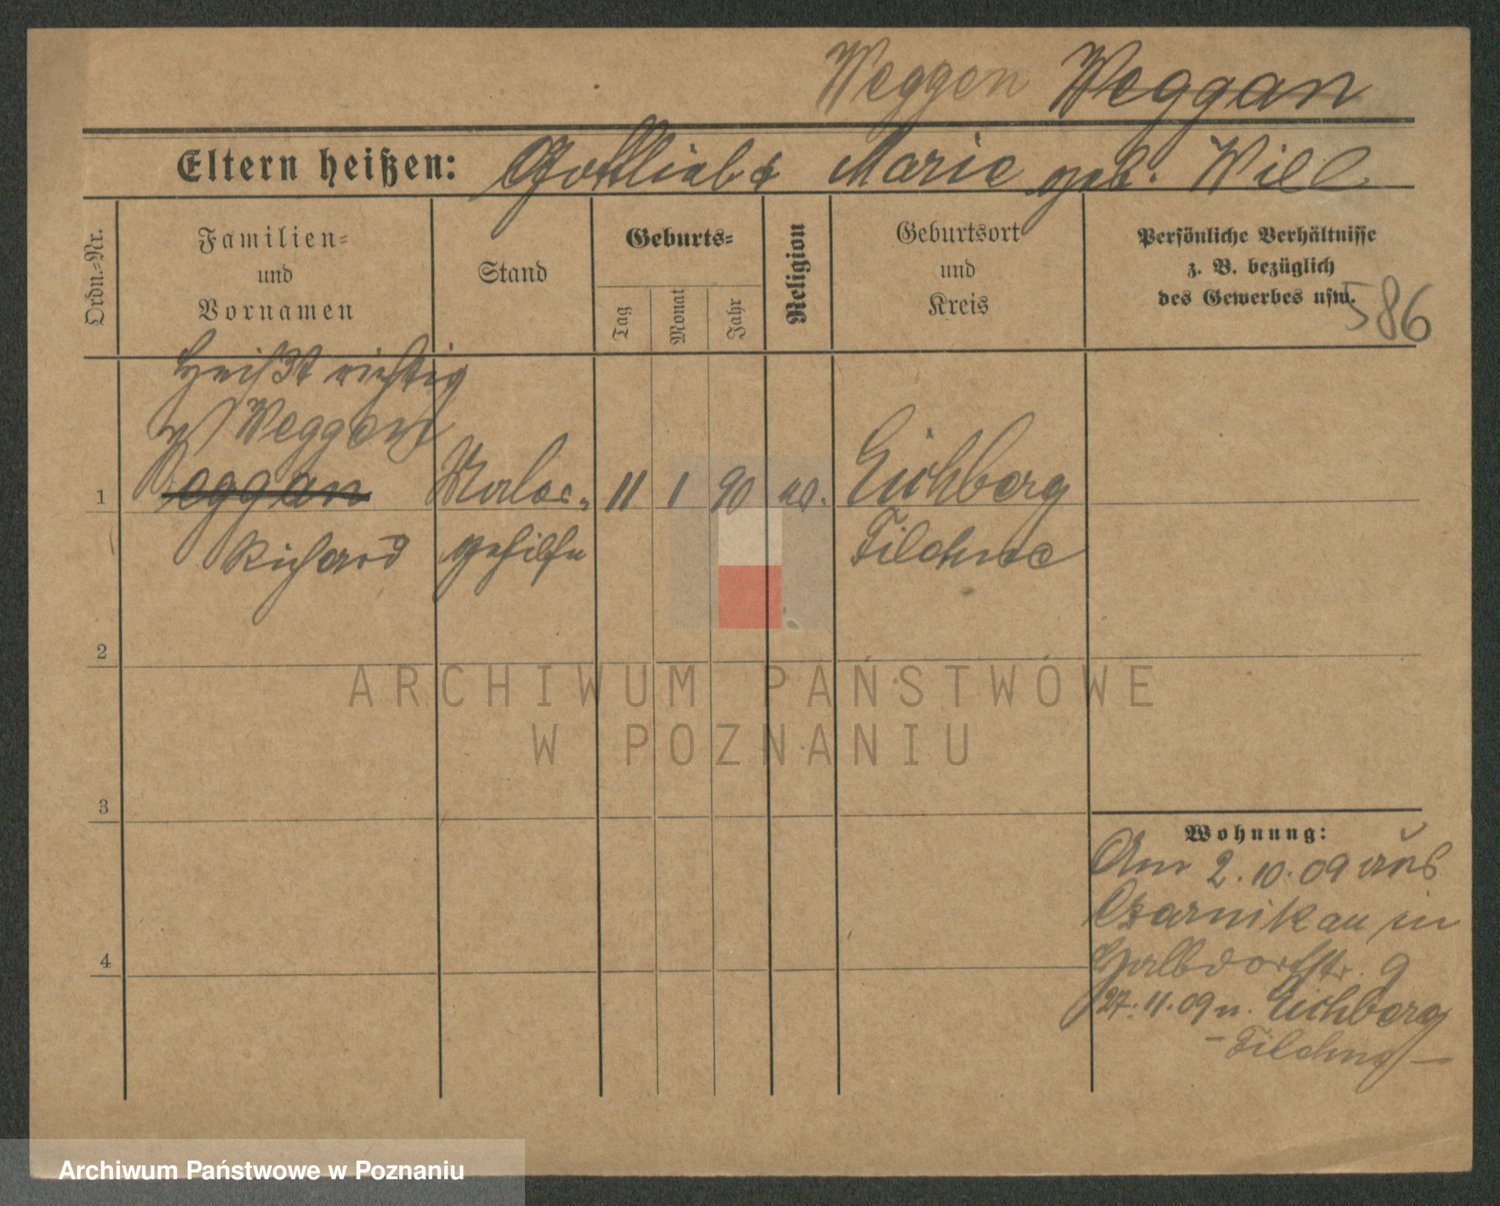 Weggen Weggan
Eltern heißen: Gottlieb & Marie geb. Will
Ordn.-Nr.
Familien=
und
Vornamen
Stand
Geburts=
Tag
Monat
Jahr
Religion
Geburtsort
und
Kreis
Persönliche Verhältnisse
z. B. bezüglich
des Gewerbes usw.
586
Heißt richtig
Weggen
1 Weggan Maler= 11 1 90 ev. Eichberg
Richard gehilfe Filehne
2
3
4
Wohnung:
Am 2.10.09 aus
Czarnikau in
Halbdorfstr. 9
27.11.09 n. Eichberg
- Filehne -
ARCHIWUM PAŃSTWOWE
W POZNANIU
Archiwum Państwowe w Poznaniu